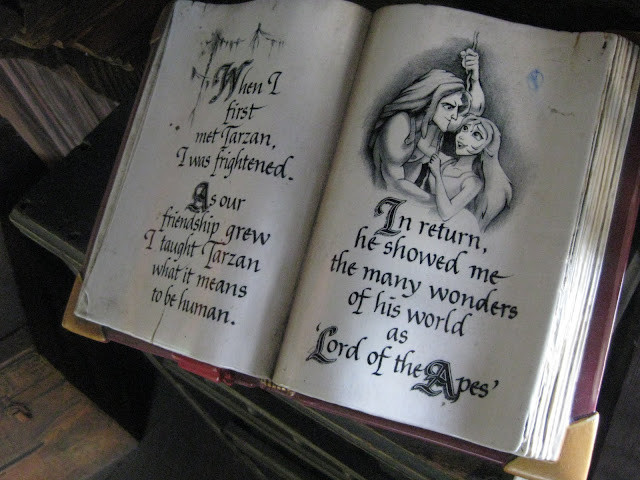 When I
first
met Tarzan,
I was frightened.
As our
friendship grew
I taught Tarzan
what it means
to be human.
In return,
he showed me
the many wonders
of his world
as
'Lord of the Apes'